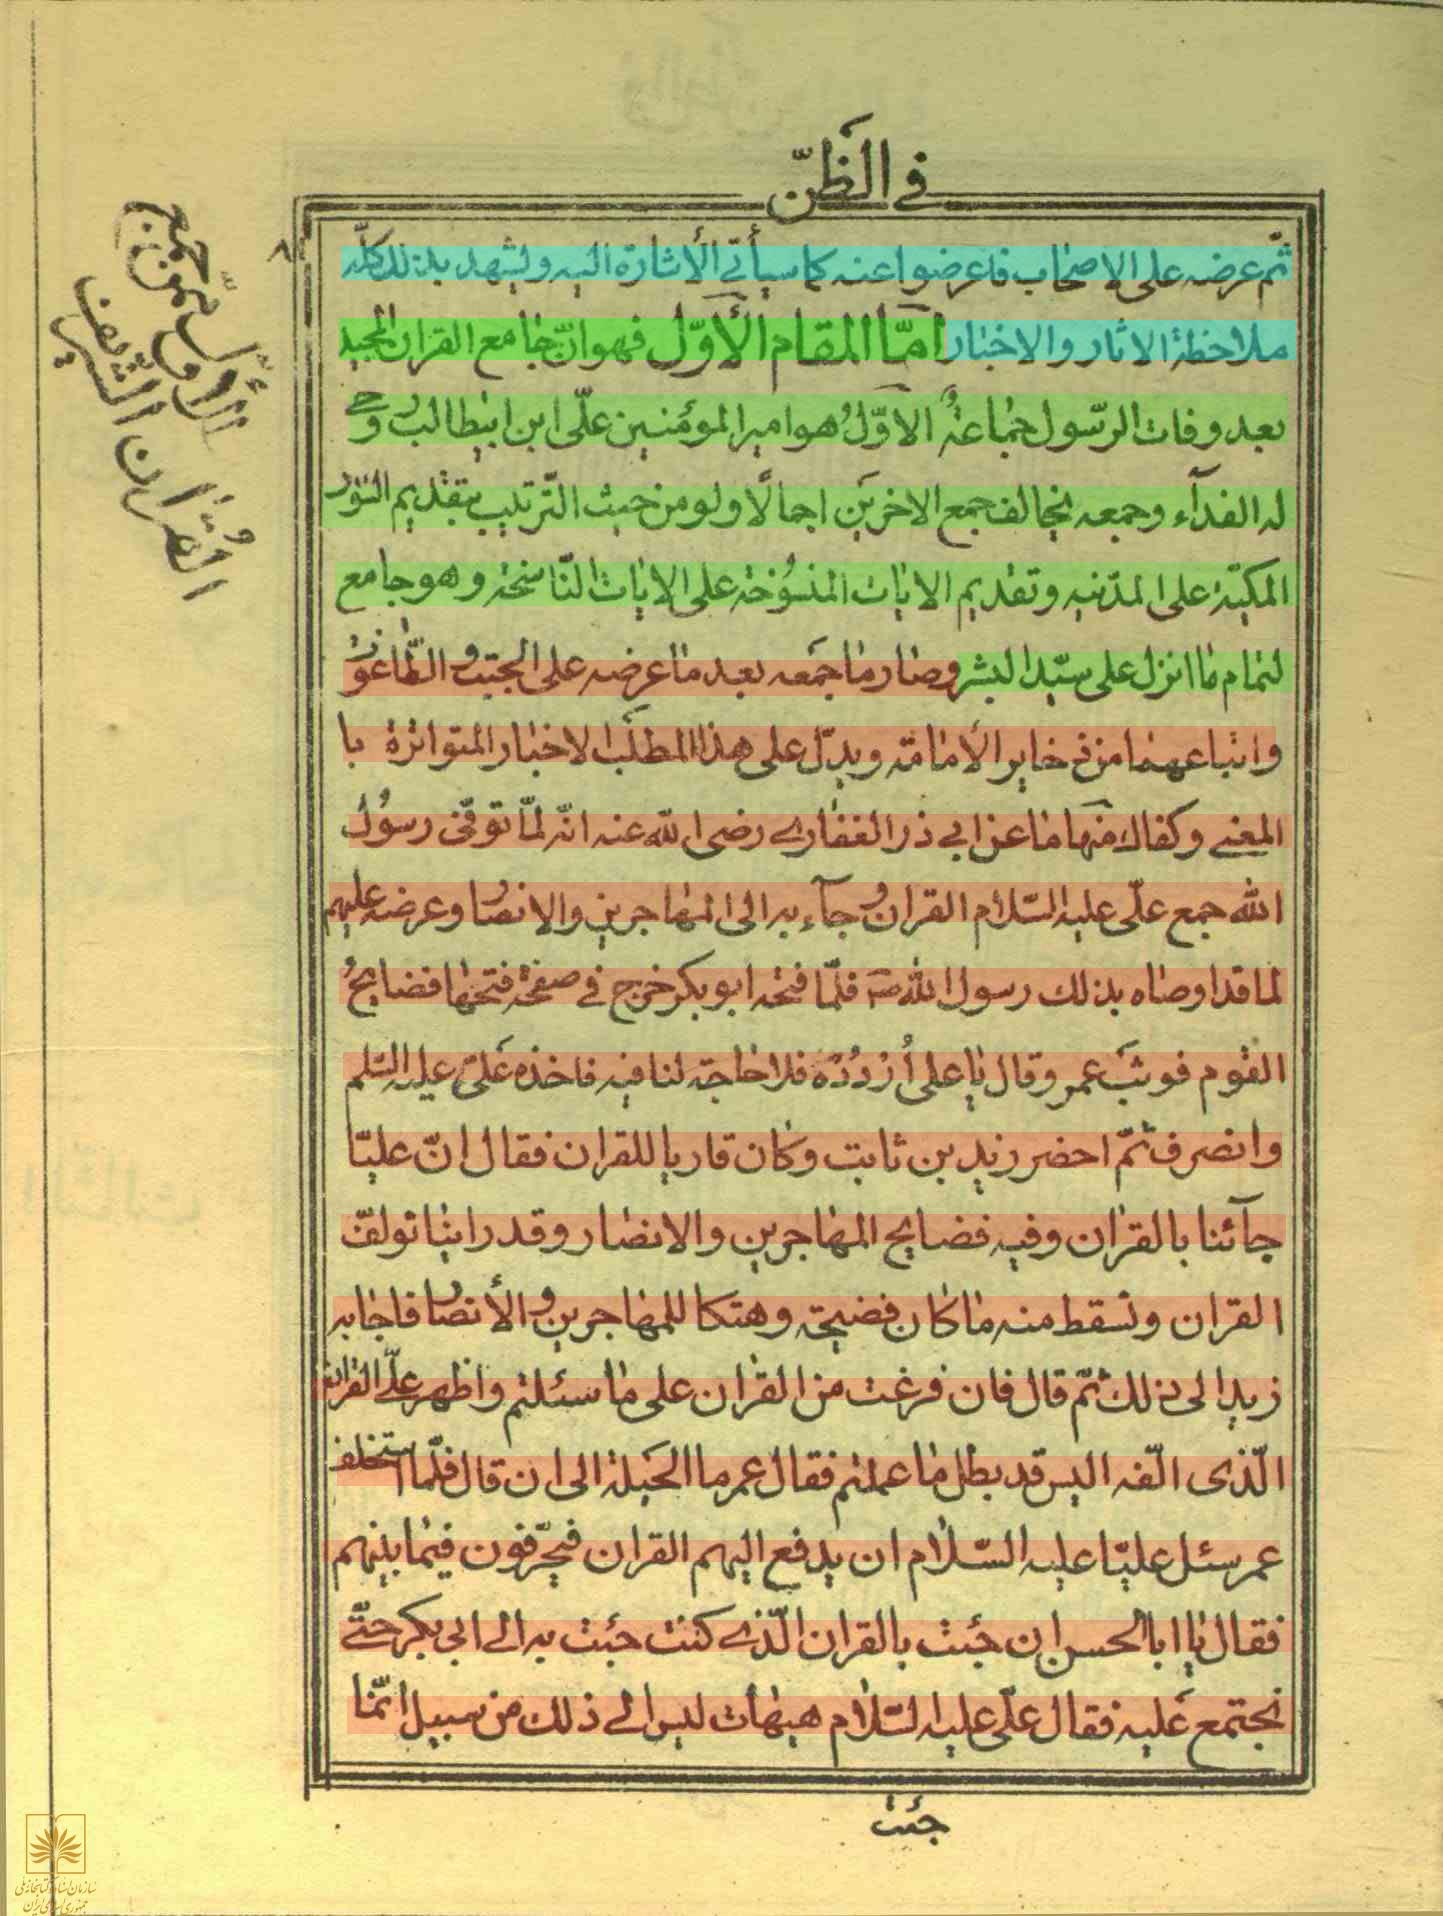 في الظنّ
ثم عرضه على الاصحاب فاعرضوا عنه كما سيأتي الأشارة اليه ويشهد بذلك كلّه
ملاحظة الاثار والاخبار امّا المقام الأوّل فهو انّ جامع القران المجيد
بعد وفات الرّسول جماعة الاوّل هو امير المؤمنين علّى ابن ابيطالب روحي
له الفدآء وجمعه يخالف جمع الاخرين اجمالًا ولو من حيث التّرتيب بتقديم السّور
المكيّة على المدنيه وتقديم الايات المنسُوخة على الايات النّاسخة وهو جامع
لتمام ما انزل على سيّد البشر وصار ما جمعه بعد ما عرضه على الجبت والطّاغوت
واتباعهما من ذخاير الأمامة ويدلّ على هذا المطلب الاخبار المتواترة با
المعنى وكفاك منها ما عن ابي ذر الغفاري رضى الله عنه انّه لمّا توفّى رسُول
الله جمع علّى عليه السّلام القران وجآء به الى المهاجرين والانصار وعرضه عليهم
لما قد اوصاه بذلك رسول الله ص فلمّا فتحه ابو بكر خرج في صفحة فتحها فضايح
القوم فوثب عمر وقال يا على اُرْدُدْه فلا حاجة لنا فيه فاخذه علىّ عليه السّلم
وانصرف ثمّ احضر زيد بن ثابت وكان قاريا للقران فقال انّ عليّا
جآئنا بالقران وفيه فضايح المهاجرين والانصار وقد راينا تولف
القران ونسقط منه ما كان فضيحة وهتكا للمهاجرين والأنصار فاجابه
زيد الى ذلك ثمّ قال فان فرغت من القران على ما سئلتم واظهر علّي القران
الّذى الّفه اليس قد بطل ما عملتم فقال عمر ما الحيلة الى ان قال فلّما استخلف
عمر سئل عليّا عليه السّلام ان يدفع اليهم القران فيحرّفون فيما بينهم
فقال يا ابا الحسن ان جئت بالقران الّذي كنت جئت به الى ابي بكر حتّى
نجتمع عليه فقال علّى عليه السّلام هيهات ليس الى ذلك من سبيل انّما
جئت
٨
الأوّل ممّن جمع
القُرْان الشّريف
سازمان اسناد و کتابخانه ملی
جمهوری اسلامی ایران